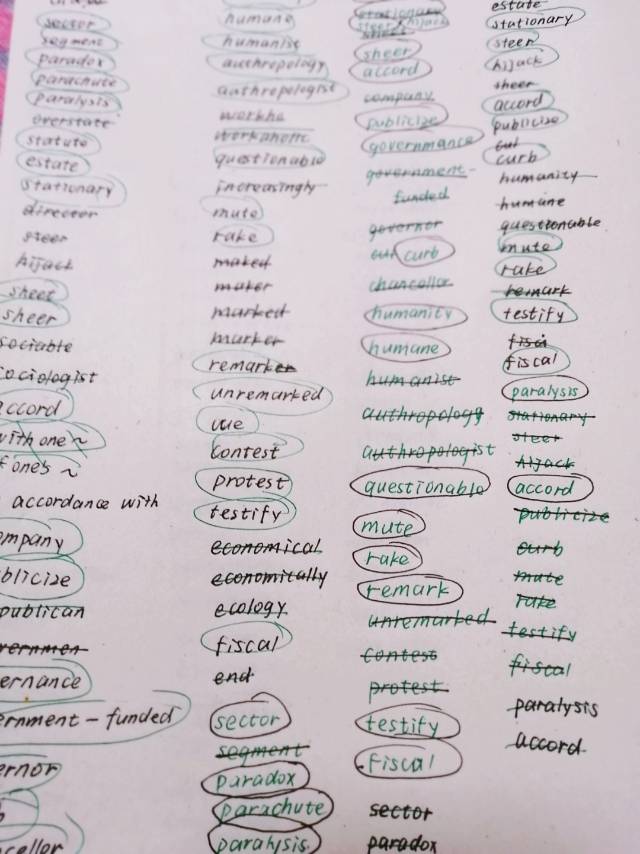 sector
segment
paradox
parachute
paralysis
overstate
statute
estate
stationary
director
steer
hijack
sheet
sheer
sociable
sociologist
accord
with one ~
f one's ~
accordance with
mpany
blicize
publican
vernmen
ernance
ernment-funded
ernor
cellor
humane
humanist
authropology
authropologist
workho
workaholic
questionable
increasingly
mute
rake
maked
maker
marked
marker
remarker
unremarked
vie
contest
protest
testify
economical
economically
ecology
fiscal
end
sector
segment
paradox
parachute
paralysis
stationary
steer hijack
sheer
accord
company
publicize
governmance
government-
funded
governor
out curb
chancellor
humanity
humane
humanist
authropology
authropologist
questionable
mute
rake
remark
unremarked
contest
protest
testify
fiscal
sector
paradox
estate
stationary
steer
hijack
sheer
accord
publicize
cut
curb
humanity
humane
questionable
mute
rake
remark
testify
fisci
fiscal
paralysis
stationary
steer
hijack
accord
publicize
curb
mute
rake
testify
fiscal
paralysis
accord